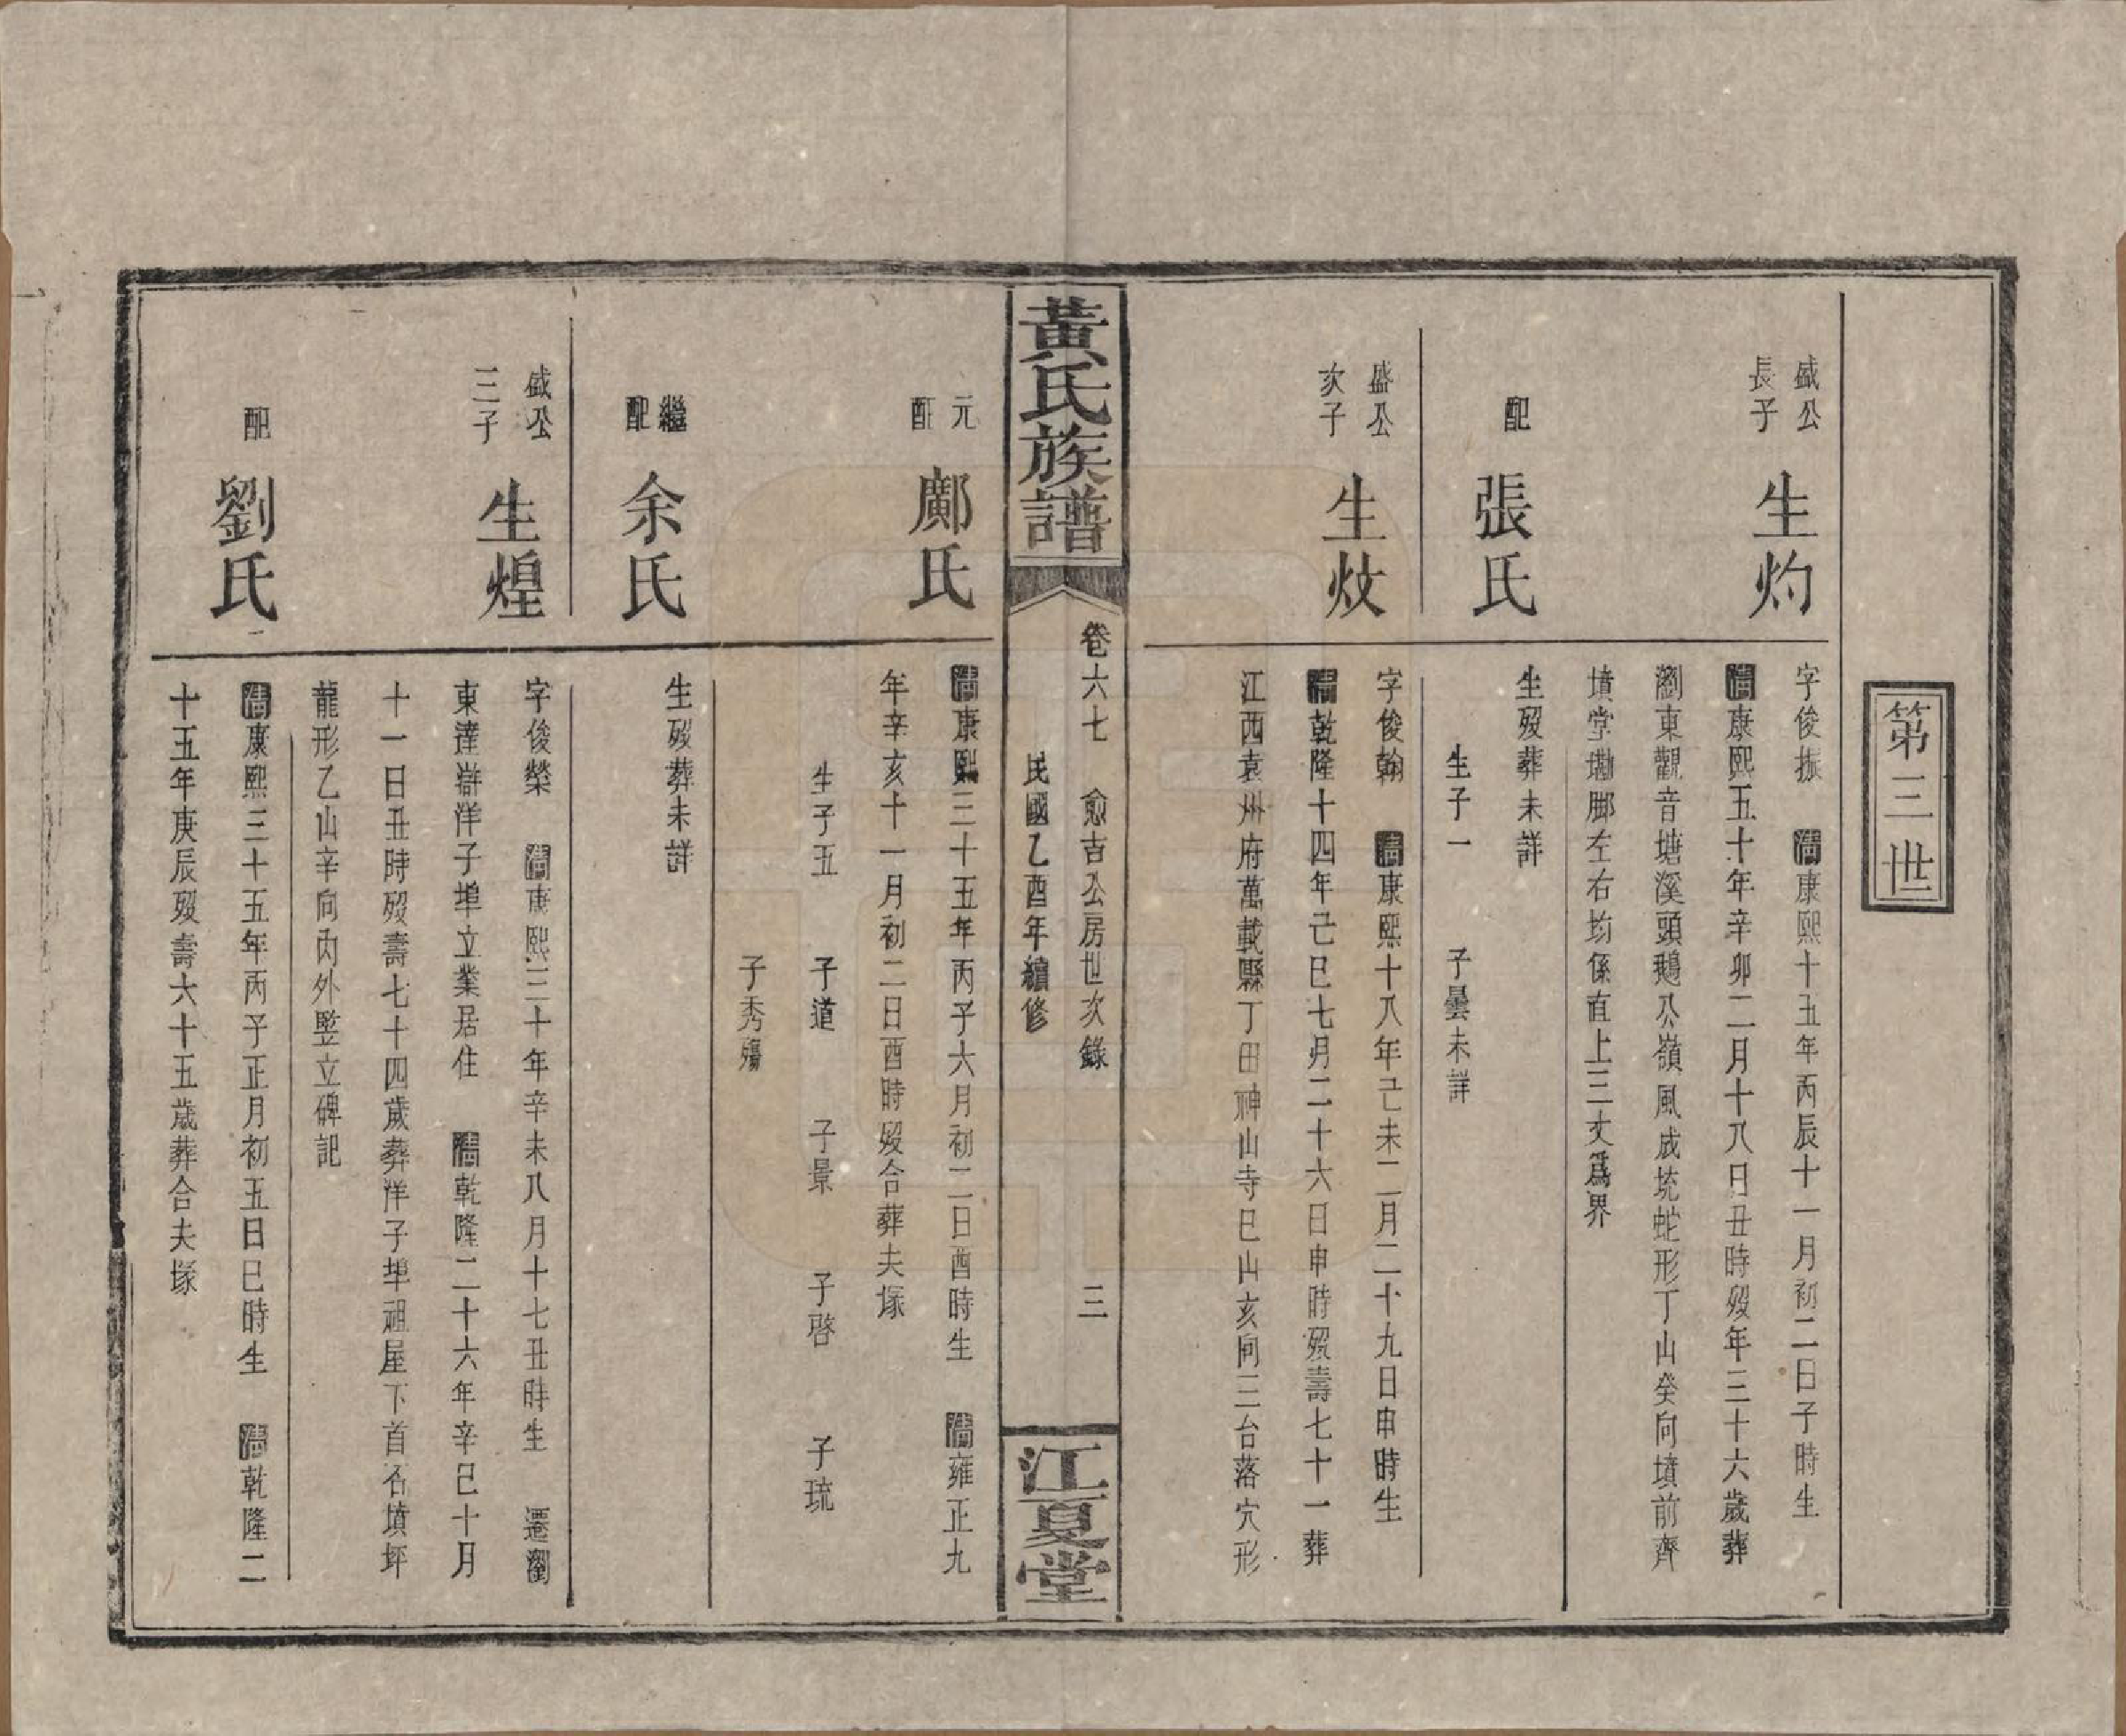 第三世
盛公
長子
生灼
字俊振 清康熙十五年丙辰十一月初二日子時生
清康熙五十年辛卯二月十八日丑時歿年三十六歲葬
瀏東觀音塘溪頭鵝公嶺風成坑蛇形丁山癸向墳前齊
墳堂磡脚左右均係直上三丈爲界
配
張氏
生歿葬未詳
生子一 子曇未詳
盛公
次子
生炆
字俊翰 清康熙十八年己未二月二十九日申時生
清乾隆十四年己巳七月二十六日申時歿壽七十一葬
江西袁州府萬載縣丁田神山寺巳山亥向三台落穴形
黃氏族譜
卷六七 愈吉公房世次錄 三
民國乙酉年續修
江夏堂
元
配
鄺氏
清康熙三十五年丙子六月初二日酉時生 清雍正九
年辛亥十一月初二日酉時歿合葬夫塚
生子五 子道 子景 子啓 子琉
子秀殤
繼
配
余氏
生歿葬未詳
盛公
三子
生煌
字俊榮 清康熙三十年辛未八月十七丑時生 遷瀏
東達滸洋子埠立業居住 清乾隆二十六年辛巳十月
十一日丑時歿壽七十四歲葬洋子埠祖屋下首石墳坪
龍形乙山辛向內外豎立碑記
配
劉氏
清康熙三十五年丙子正月初五日巳時生 清乾隆二
十五年庚辰歿壽六十五歲葬合夫塚